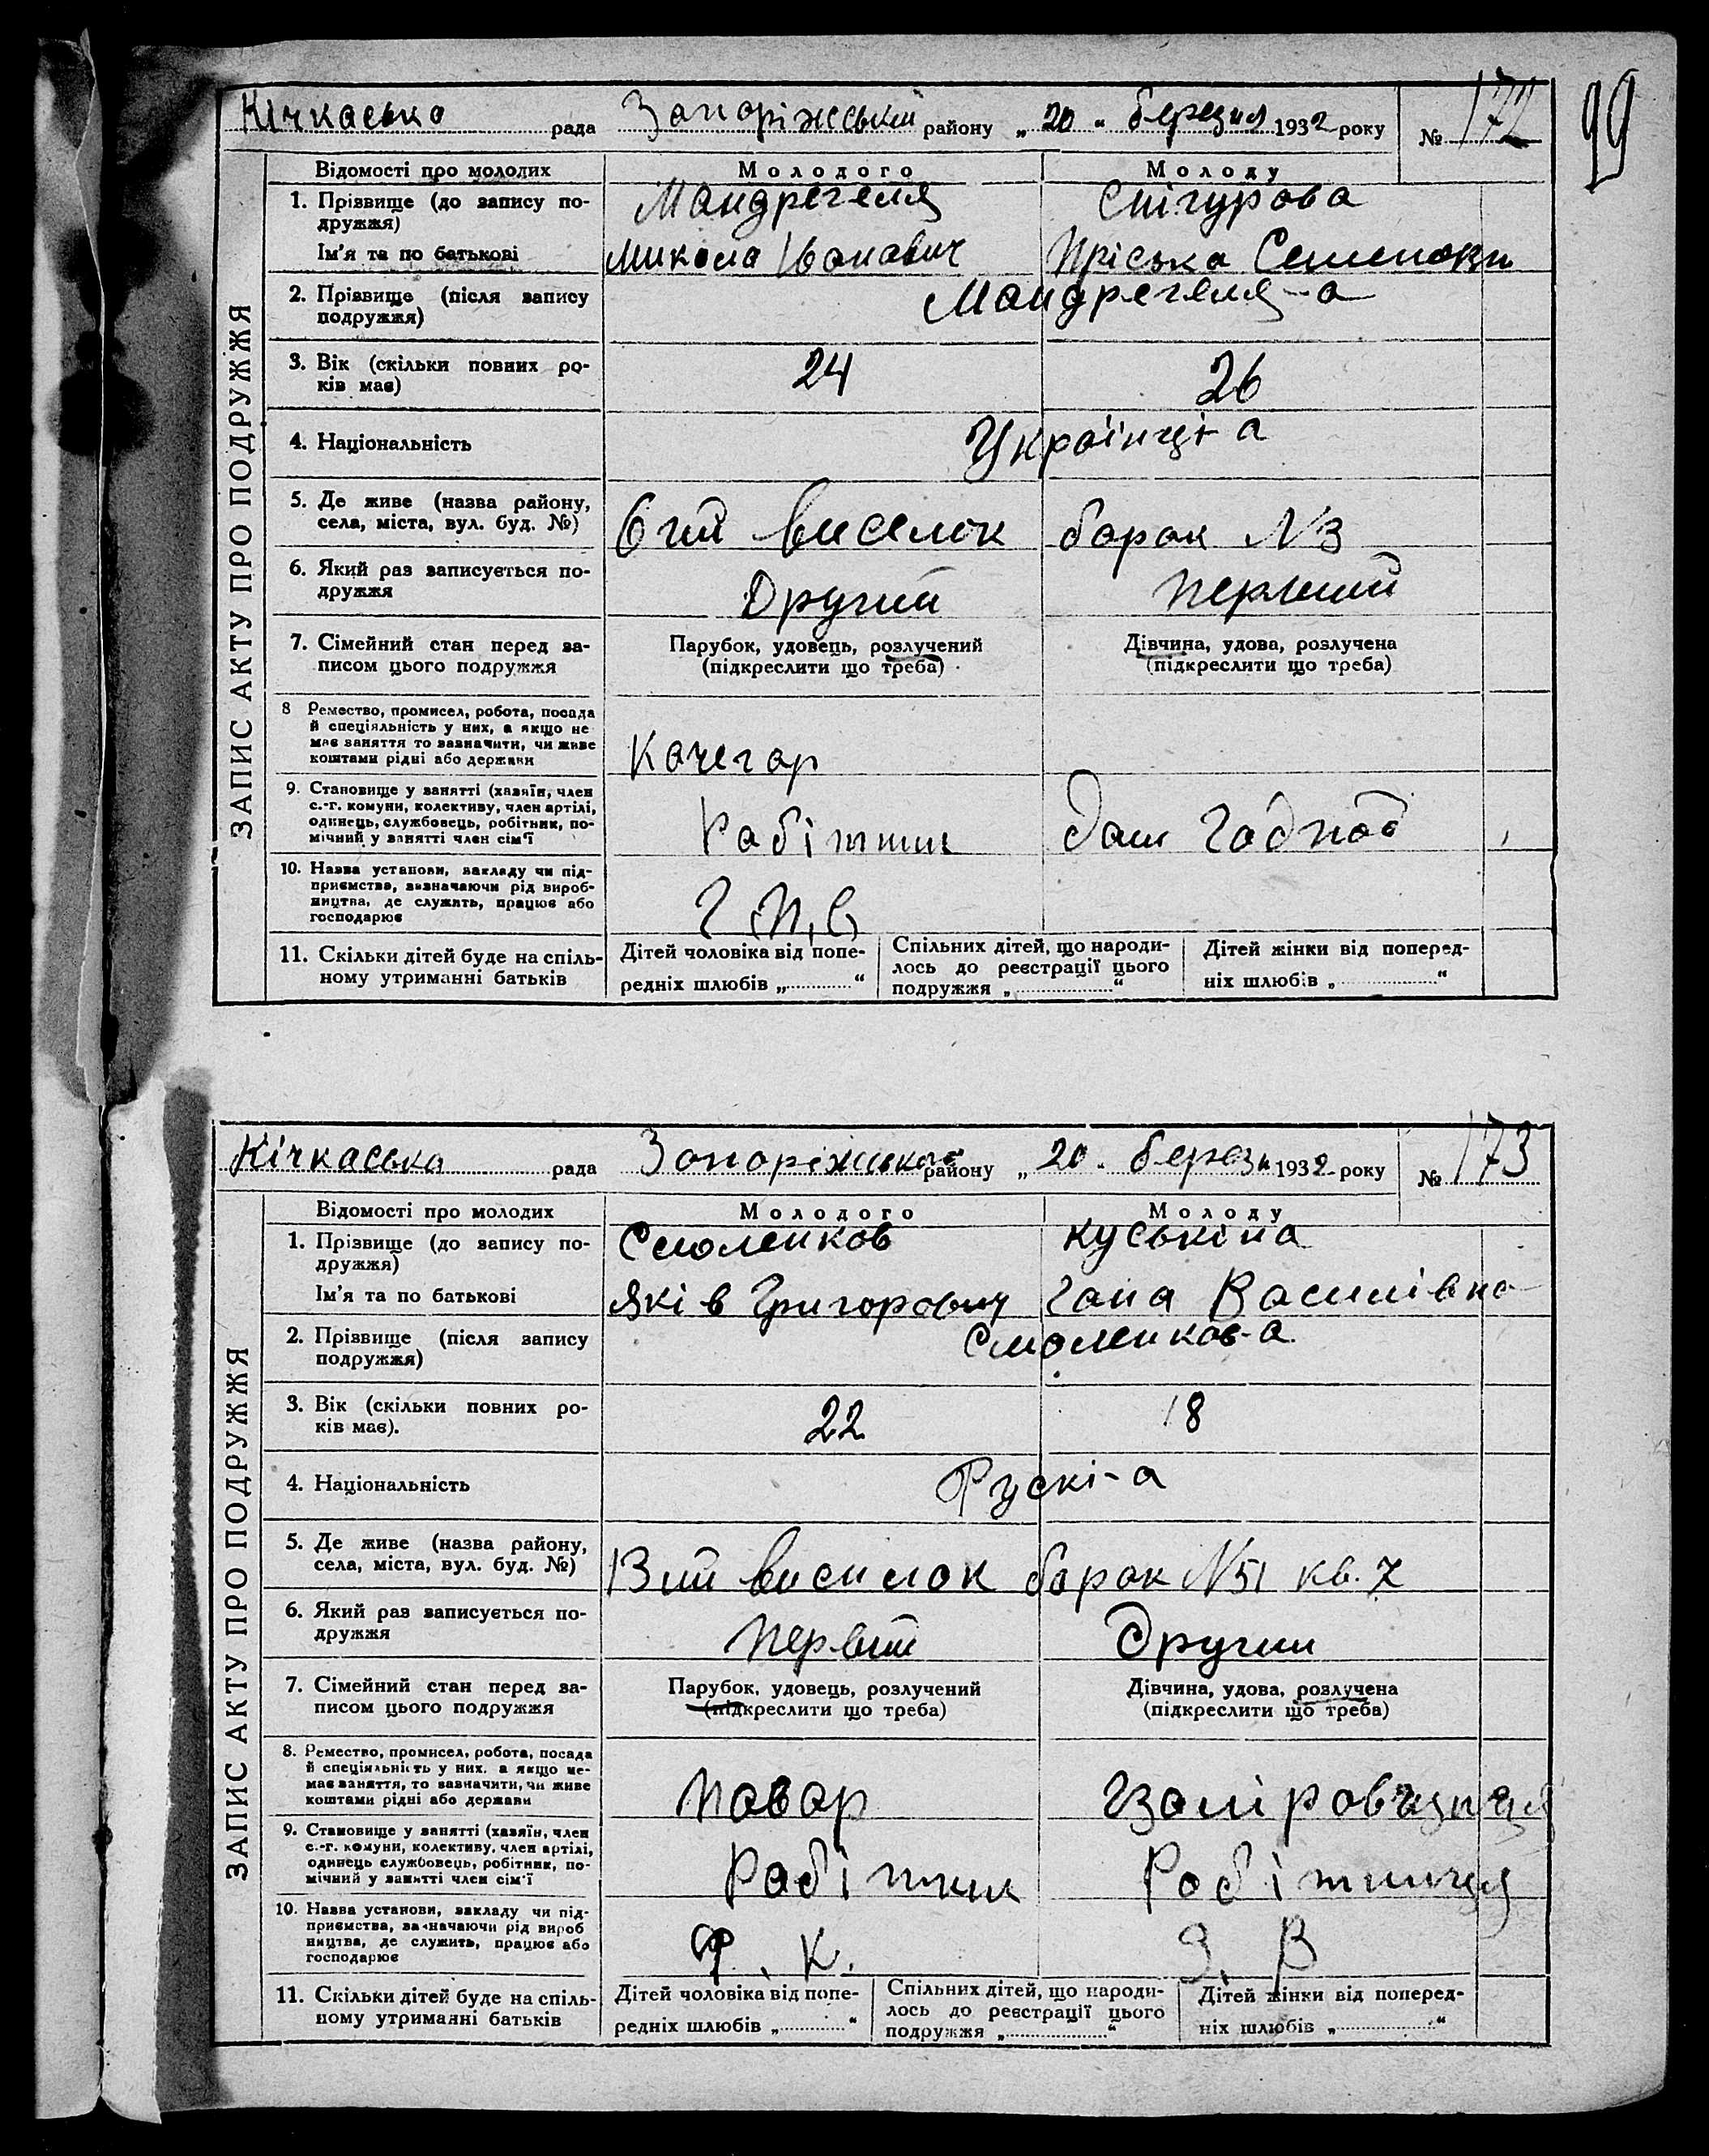 99
Кічкаська рада Запоріжський району „ 20 „ березня 1932 року № 172
ЗАПИС АКТУ ПРО ПОДРУЖЖЯ
Відомості про молодих Молодого Молоду
1. Прізвище (до запису по- Мандрегеля Снігурова
дружжя)
Ім'я та по батькові Микола Іванович Пріська Семеновн
2. Прізвище (після запису Мандрегеля-а
подружжя)
3. Вік (скільки повних ро- 24 26
ків має)
4. Національність Українці-а
5. Де живе (назва району,
села, міста, вул. буд. №) 6 тий виселок барак N 3
6. Який раз записується по-
дружжя Другий первший
7. Сімейний стан перед за- Парубок, удовець, розлучений Дівчина, удова, розлучена
писом цього подружжя (підкреслити що треба) (підкреслити що треба)
8 Ремество, промисел, робота, посада
й спеціяльність у них, а якщо не
має заняття то зазначити, чи живе Качегар
коштами рідні або держави
9. Становище у занятті (хазяїн, член
с.-г. комуни, колективу, член артілі,
одинець, службовець, робітник, по- Рабітник Дом
мічний у занятті член сім'ї
10. Назва установи, закладу чи під-
приємства, визначаючи рід вироб-
ництва, де служить, працює або
господарює
11. Скільки дітей буде на спіль- Дітей чоловіка від попе- Спільних дітей, що народи- Дітей жінки від поперед-
ному утриманні батьків редніх шлюбів „ “ лось до реєстрації цього ніх шлюбів „ “
подружжя „ “
Кічкаська рада Запоріжського району „ 20 „ березн 1932 року № 173
ЗАПИС АКТУ ПРО ПОДРУЖЖЯ
Відомості про молодих Молодого Молоду
1. Прізвище (до запису по- Смоленков Куськіна
дружжя)
Ім'я та по батькові Яків Григорович Гана Василівна
2. Прізвище (після запису Смоленков-а
подружжя)
3. Вік (скільки повних ро- 22 18
ків має).
4. Національність Рускі-а
5. Де живе (назва району,
села, міста, вул. буд. №) 13 ий висилок барак N 51 кв. 7
6. Який раз записується по-
дружжя первий Другий
7. Сімейний стан перед за- Парубок, удовець, розлучений Дівчина, удова, розлучена
писом цього подружжя (підкреслити що треба) (підкреслити що треба)
8. Ремество, промисел, робота, посада
й спеціяльність у них. а якщо не-
має заняття, то зазначити, чи живе Павар Ізаліровчщиця
коштами рідні або держави
9. Становище у занятті (хазяїн, член
с.-г. комуни, колективу, член артілі,
одинець службовець, робітник, по- Рабітник Робітниця
мічний у занятті член сім'ї
10. Назва установи, закладу чи під-
приємства, зазначаючи рід вироб
ництва, де служить, працює або Ф. К. З. В
господарює
11. Скільки дітей буде на спіль- Дітей чоловіка від попе- Спільних дітей, що народи- Дітей жінки від поперед-
ному утриманні батьків редніх шлюбів „ “ лось до реєстрації цього ніх шлюбів „ “
подружжя „ “